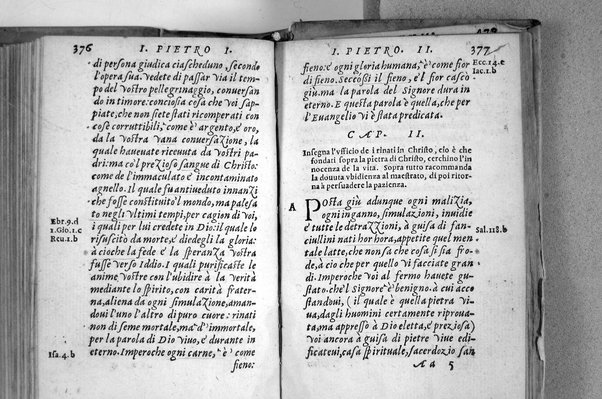 376 I. PIETRO I.
di persona giudica ciascheduno, secondo
l'opera sua. vedete di passar via il tem
po del vostro pellegrinaggio, conuersan
do in timore: conciosia cosa che voi sap-
piate, che non siete stati ricomperati con
cose corruttibili, come è argento, e oro,
da la vostra vana conuersazione, la
quale haueuate riceuuta da vostri pa-
dri: ma col prezioso sangue di Christo:
come de l'immaculato è incontaminato
agnello. Il quale fu antiueduto innanzi
che fosse constituito'l mondo, ma palesa
to negli vltimi tempi, per cagion di voi,
i quali per lui credete in Dio: il quale lo
risuscitò da morte, e diedegli la gloria:
à cioche la fede e la speranza vostra
fusse verso Iddio. I quali purificaste le
anime vostre con l'ubidire à la verità
mediante lo spirito, con carità frater-
na, aliena da ogni simulazione, aman-
doui l'uno l'altro di puro cuore: rinati
non di seme mortale, ma d'immortale,
per la parola di Dio viuo, e durante in
eterno. Imperoche ogni carne, è come
fieno:
Ebr. 9. d
1. Gio. 1. c
Reu. 1. b
Isa. 4. b
I. PIETRO. II. 377
fieno: e ogni gloria humana, è come fior
di fieno. Seccossi il fieno, e'l fior cascò
giù. ma la parola del Signore dura in
eterno. E questa parola è quella, che per
l'Euangelio vi è stata predicata.
Ecc. 14. c
Iac. 1. b
CAP. II.
Insegna l'vfficio de i rinati in Christo, cio è che
fondati sopra la pietra di Christo, cerchino l'in
nocenza de la vita. Sopra tutto raccomanda
la douuta vbidienza al maestrato, di poi ritor
na à persuadere la pazienza.
A
Posta giù adunque ogni malizia,
ogni inganno, simulazioni, inuidie
e tutte le detrazzioni, à guisa di fan-
ciullini nati hor hora, appetite quel men
tale latte, che non sa che cosa si sia fro-
de, à cio che per quello vi facciate gran
di. Imperoche voi al fermo hauete gu-
stato. che'l Signore è benigno. à cui acco
standoui, ( il quale è quella pietra vi-
ua, dagli huomini certamente riprouata,
ma appresso à Dio eletta, e preziosa)
voi ancora à guisa di pietre viue edi-
ficateui, casa spirituale, sacerdozio san
Aa 5
Sal. 118. b